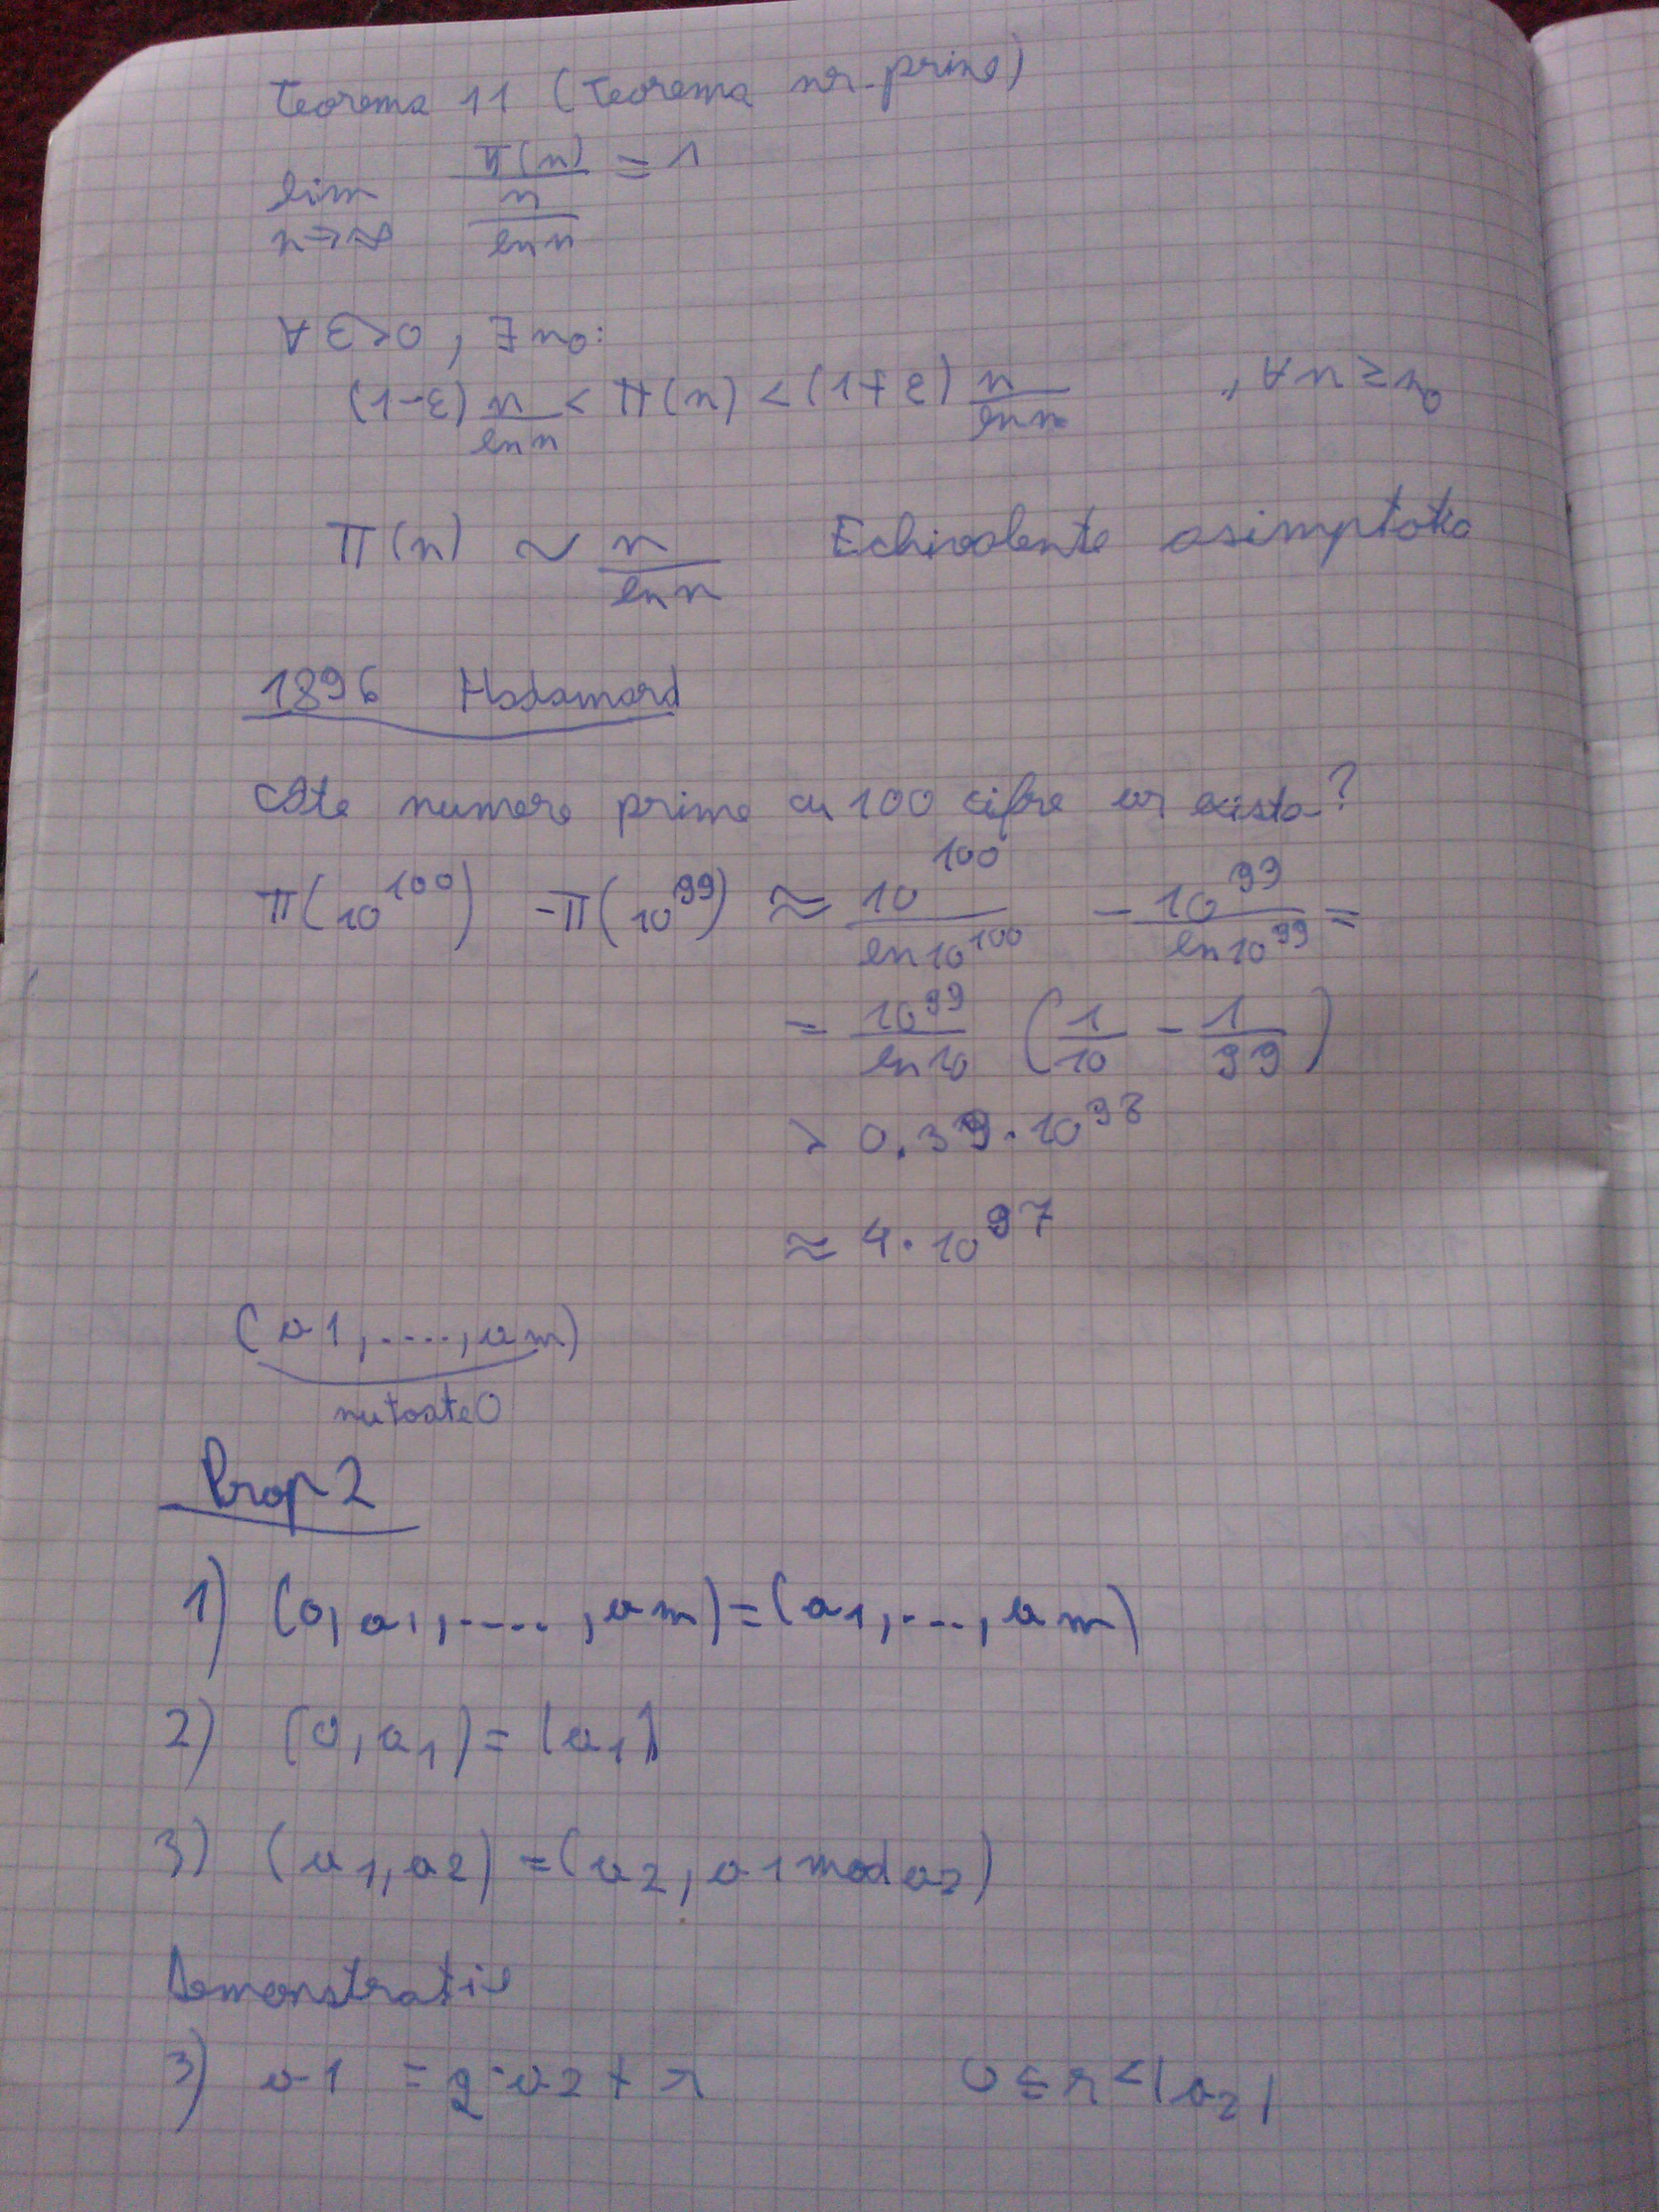 Teorema 11 (Teorema nr. prime)
lim n→∞ π(n) / (n / ln n) = 1
∀ ε>0, ∃ n0:
(1-ε) n/ln n < π(n) < (1+ε) n/ln n , ∀ n ≥ n0
π(n) ~ n/ln n Echivalente asimptotic
1896 Hadamard
Câte numere prime cu 100 cifre ar exista?
π(10^100) - π(10^99) ≈ 10^100/ln 10^100 - 10^99/ln 10^99 =
= 10^99/ln 10 (1/10 - 1/99)
> 0.39 · 10^98
≈ 4 · 10^97
(a1, ...., am)
nu toate 0
Prop 2
1) (0, a1, ...., am) = (a1, ..., am)
2) (0, a1) = |a1|
3) (a1, a2) = (a2, a1 mod a2)
Demonstratie
3) a1 = q·a2 + r 0 ≤ r < |a2|